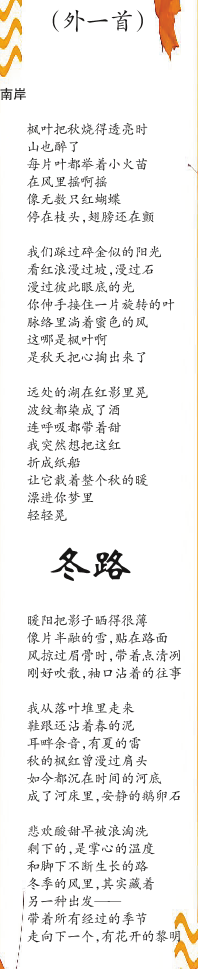 （外一首）
南岸
枫叶把秋烧得透亮时
山也醉了
每片叶都举着小火苗
在风里摇啊摇
像无数只红蝴蝶
停在枝头，翅膀还在颤
我们踩过碎金似的阳光
看红浪漫过坡，漫过石
漫过彼此眼底的光
你伸手接住一片旋转的叶
脉络里淌着蜜色的风
这哪是枫叶啊
是秋天把心掏出来了
远处的湖在红影里晃
波纹都染成了酒
连呼吸都带着甜
我突然想把这红
折成纸船
让它载着整个秋的暖
漂进你梦里
轻轻晃
冬路
暖阳把影子晒得很薄
像片半融的雪，贴在路面
风掠过眉骨时，带着点清冽
刚好吹散，袖口沾着的往事
我从落叶堆里走来
鞋跟还沾着春的泥
耳畔余音，有夏的雷
秋的枫红曾漫过肩头
如今都沉在时间的河底
成了河床里，安静的鹅卵石
悲欢酸甜早被浪淘洗
剩下的，是掌心的温度
和脚下不断生长的路
冬季的风里，其实藏着
另一种出发——
带着所有经过的季节
走向下一个，有花开的黎明